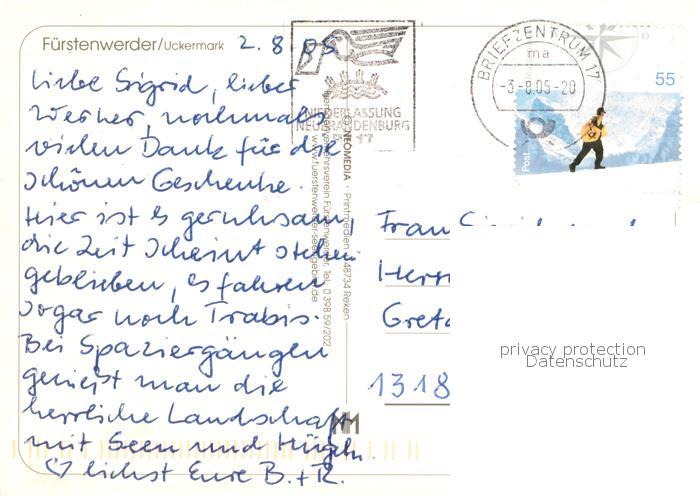 Fürstenwerder/Uckermark
2.8.05
Liebe Sigrid, lieber
Werner, nochmals
vielen Dank für die
schönen Geschenke.
Hier ist es geruhsam,
die Zeit scheint stehen
geblieben, es fahren
sogar noch Trabis.
Bei Spaziergängen
genießt man die
herrliche Landschaft
mit Seen und Hügeln.
♡lichst Eure B. + R.
NIEDERLASSUNG
NEUBRANDENBURG
17
NEOMEDIA · Printmedien · 48734 Reken
Fremdenverkehrsverein Fürstenwerder, Tel. 0 398 59/202
www.fuerstenwerder-seengebiet.de
BRIEFZENTRUM 17
ma
-3.-8.05-20
55
Post
Frau
Herrn
1318
privacy protection
Datenschutz